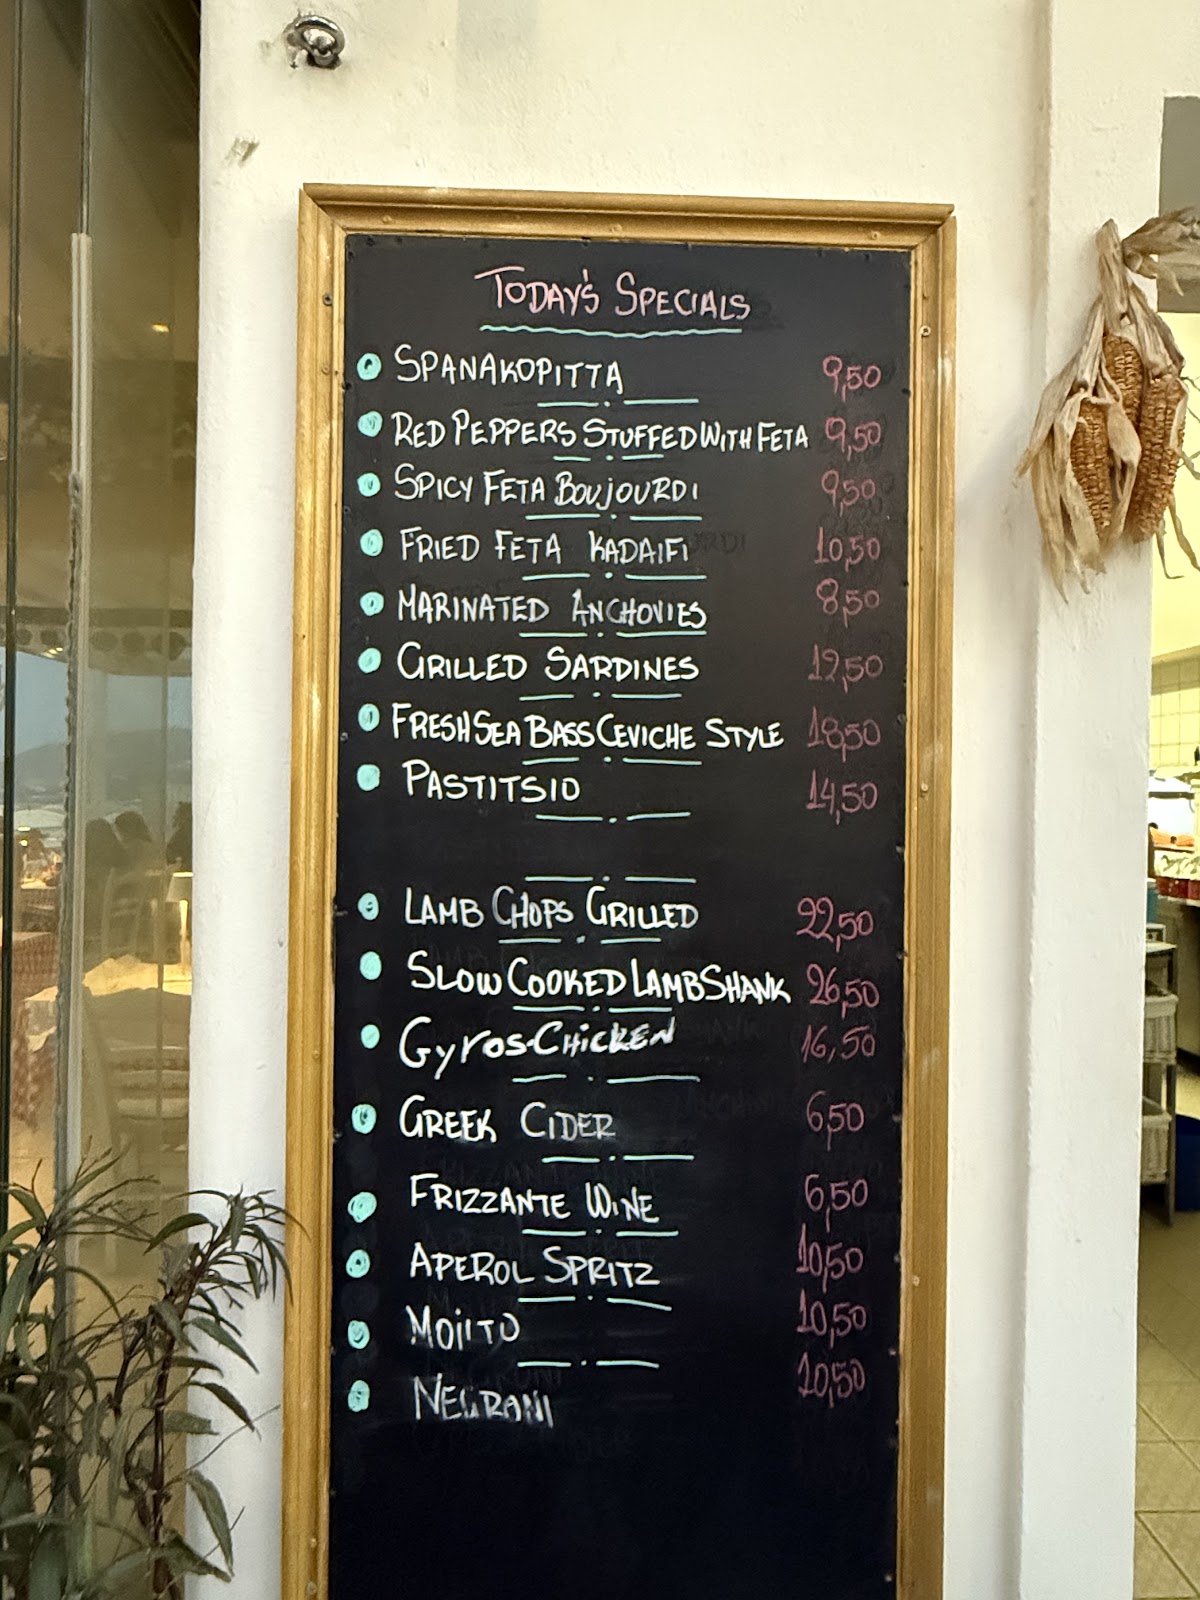 TODAY'S SPECIALS
SPANAKOPITTA 9,50
RED PEPPERS STUFFED WITH FETA 9,50
SPICY FETA BOUJOURDI 9,50
FRIED FETA KADAIFI 10,50
MARINATED ANCHOVIES 8,50
GRILLED SARDINES 12,50
FRESH SEA BASS CEVICHE STYLE 18,50
PASTITSIO 14,50
LAMB CHOPS GRILLED 22,50
SLOW COOKED LAMB SHANK 26,50
Gyros-CHICKEN 16,50
GREEK CIDER 6,50
FRIZZANTE WINE 6,50
APEROL SPRITZ 10,50
MOJITO 10,50
NEGRONI 10,50